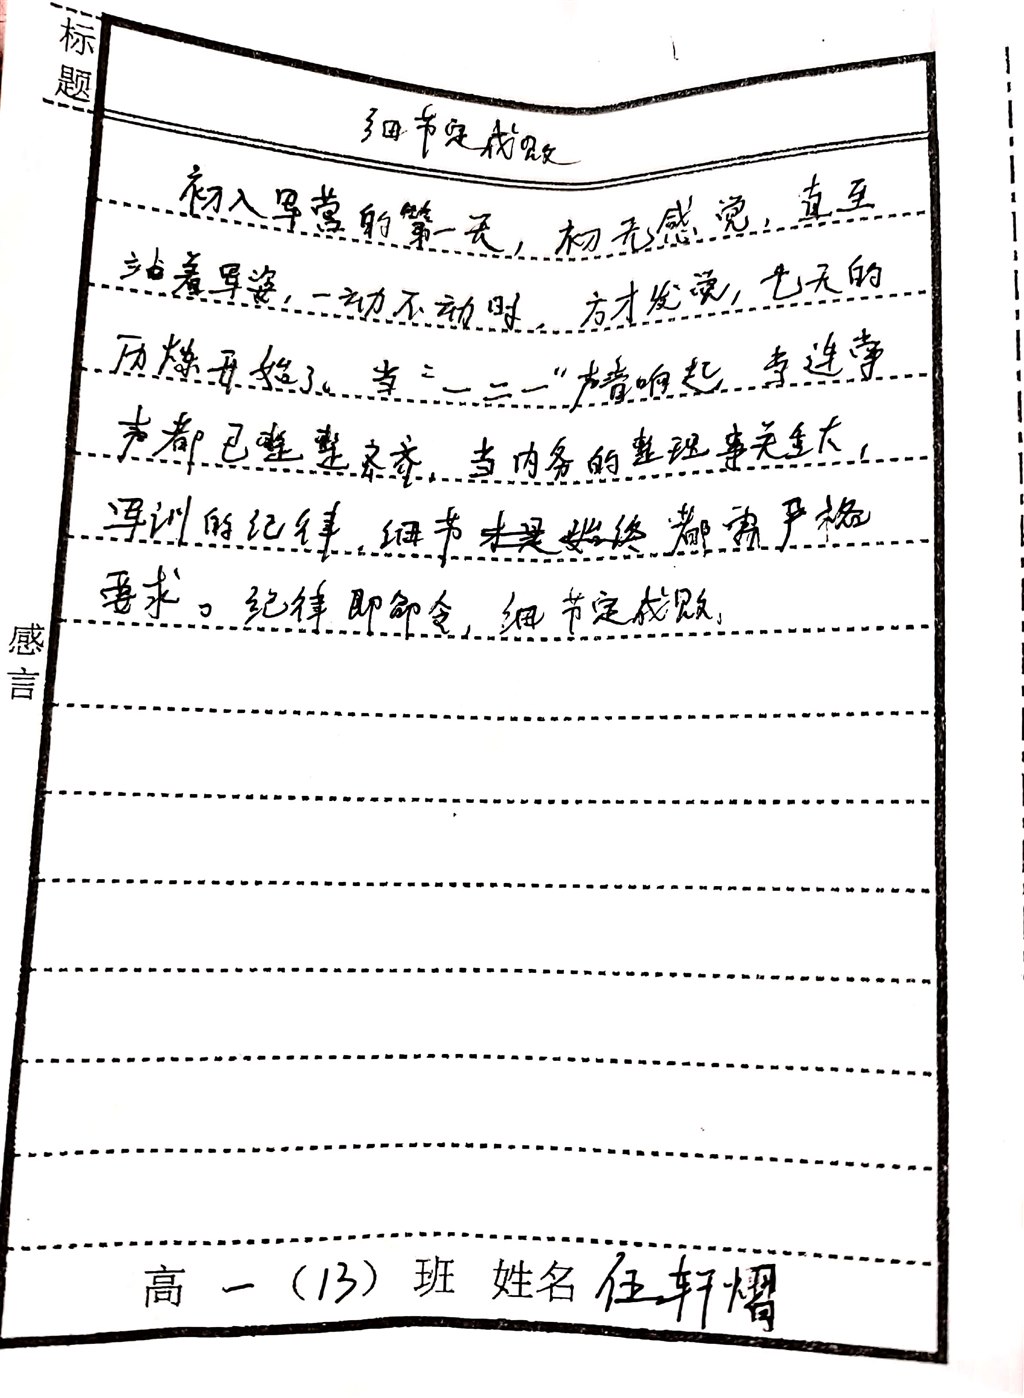 标题
细节定成败
初入军营的第一天，初无感觉，直至
站着军姿，一动不动时，方才发觉，七天的
历炼开始了。当“一二一”声音响起，连掌
声都已整整齐齐，当内务的整理事关重大，
军训的纪律，细节 始终都需严格
要求。纪律即命令，细节定成败。
感言
高一（13）班 姓名 任轩熠